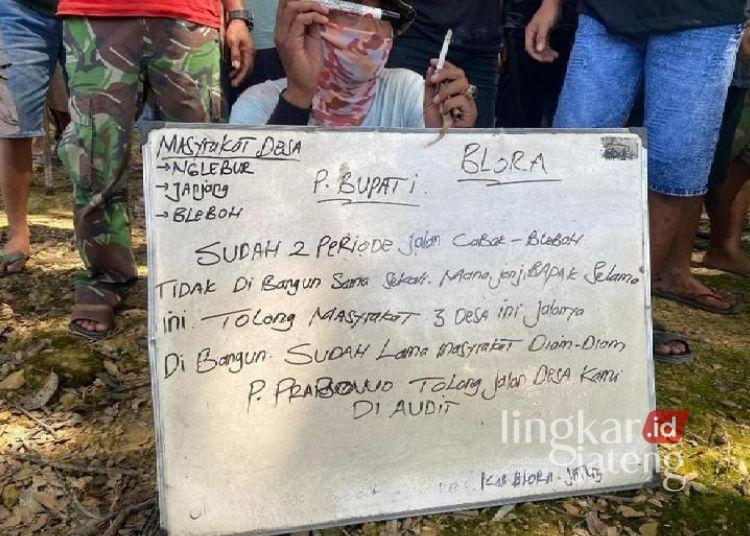 MASYRAKAT DESA
→ NGLEBUR
→ Janjang
→ BLEBOH
P. BUPATi.
BLORA
SUDAH 2 PERIODE Jalan CABAK - BLEBOH
TIDAK Di Bangun Sama Sekali. Mana janji BAPAK Selama
ini. TOLONG MASYRAKAT 3 DESA ini Jalanya
Di Bangun. SUDAH Lama masyrakat Diam-Diam
P. PRABOWO TOLONG Jalan DESA Kami
DI AUDIT
KAB BLORA - JATENG
lingkar.id
jateng